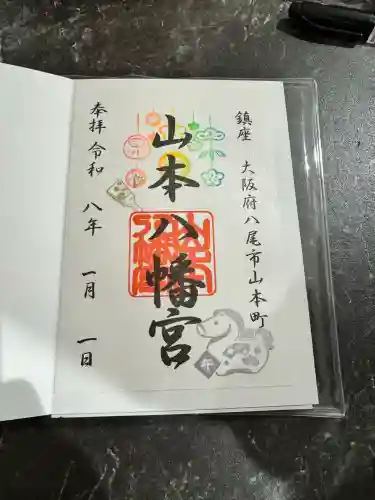 鎮座 大阪府八尾市山本町
山本八幡宮
奉拝 令和 八年 一月 一日
午